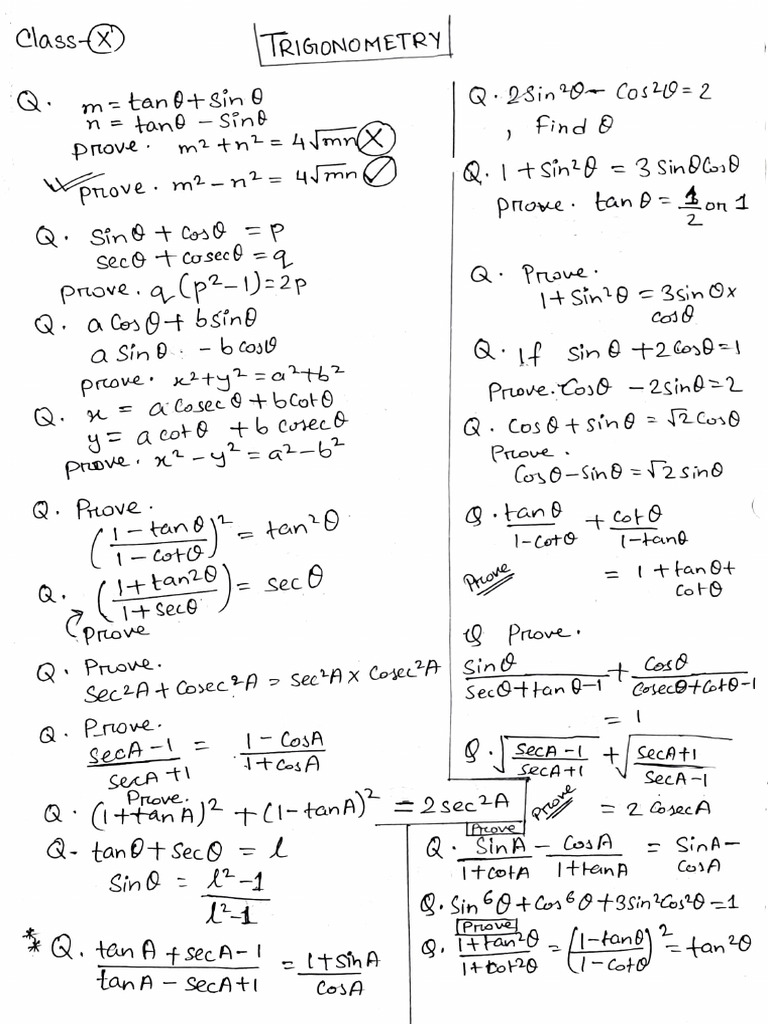 Class-X
TRIGONOMETRY
Q. m = tanθ + sinθ
n = tanθ - sinθ
prove. m² + n² = 4√mn X
prove. m² - n² = 4√mn ✓
Q. sinθ + cosθ = p
secθ + cosecθ = q
prove. q (p² - 1) = 2p
Q. a cosθ + b sinθ
a sinθ - b cosθ
prove. x² + y² = a² + b²
Q. x = a cosecθ + b cotθ
y = a cotθ + b cosecθ
prove. x² - y² = a² - b²
Q. Prove.
((1 - tanθ)/(1 - cotθ))² = tan²θ
Q. ((1 + tan2θ)/(1 + secθ)) = secθ
Prove
Q. Prove.
Sec²A + Cosec²A = Sec²A × Cosec²A
Q. Prove.
(secA - 1)/(secA + 1) = (1 - CosA)/(1 + cosA)
Prove.
Q. (1 + tanA)² + (1 - tanA)² = 2 sec²A
Q - tanθ + secθ = l
Sinθ = (l² - 1)/(l² - 1)
** Q. (tanA + secA - 1)/(tanA - secA + 1) = (1 + sinA)/cosA
Q. 2Sin²θ - Cos²θ = 2
, Find θ
Q. 1 + Sin²θ = 3 SinθCosθ
Prove. tanθ = 1/2 or 1
Q. Prove.
1 + Sin²θ = 3 sinθ ×
cosθ
Q. If sinθ + 2Cosθ = 1
Prove. Cosθ - 2sinθ = 2
Q. Cosθ + sinθ = √2 Cosθ
Prove.
Cosθ - Sinθ = √2 sinθ
Q. tanθ/(1 - cotθ) + cotθ/(1 - tanθ)
Prove = 1 + tanθ +
cotθ
Q Prove.
Sinθ/(Secθ + tanθ - 1) + Cosθ/(Cosecθ + Cotθ - 1)
= 1
Q. √((SecA - 1)/(SecA + 1)) + √((SecA + 1)/(SecA - 1))
Prove = 2 CosecA
Prove
Q. SinA/(1 + cotA) - CosA/(1 + tanA) = SinA -
CosA
Q. Sin⁶θ + Cos⁶θ + 3Sin²Cos²θ = 1
Prove
Q. (1 + tan²θ)/(1 + cot²θ) = ((1 - tanθ)/(1 - Cotθ))² = tan²θ